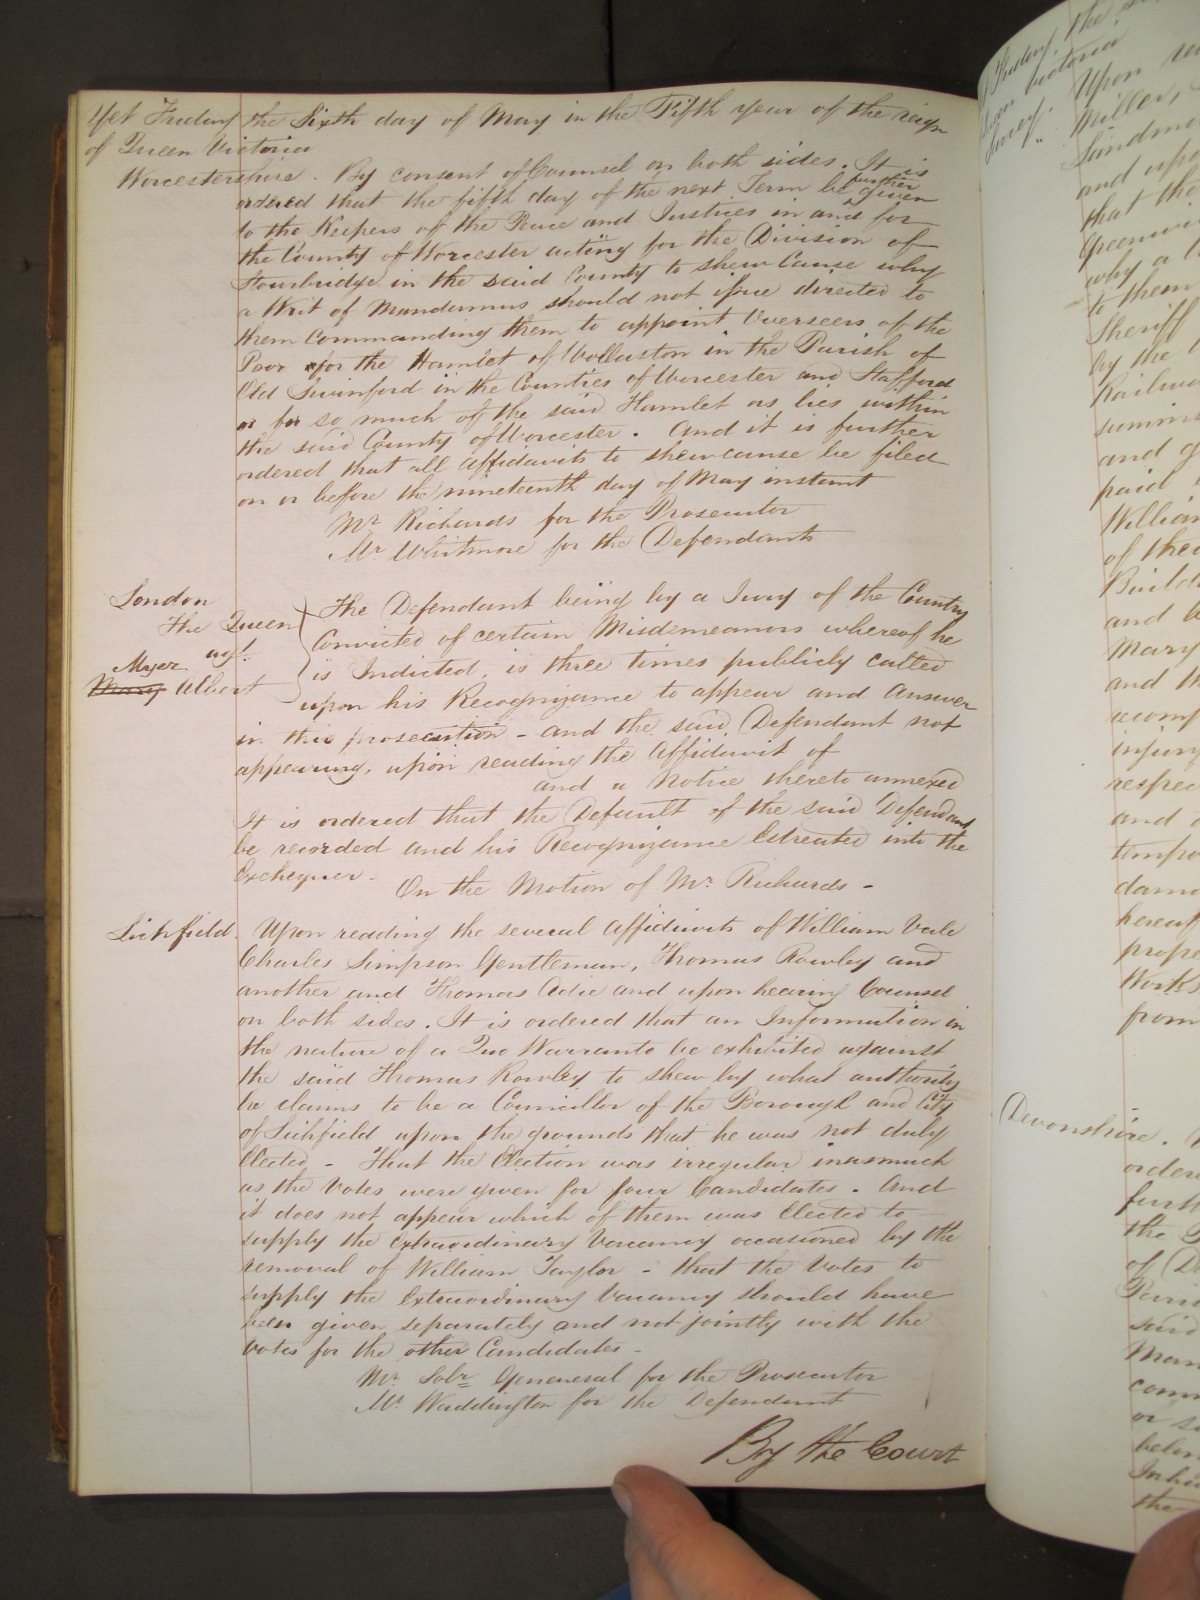 Yet Friday the Sixth day of May in the Fifth year of the reign
of Queen Victoria
Worcestershire. By consent of Counsel on both sides. It is
ordered that the fifth day of the next Term be further given
to the Keepers of the Peace and Justices in and for
the County of Worcester acting for the Division of
Stourbridge in the said County to shew Cause why
a Writ of Mandamus should not issue directed to
them Commanding them to appoint Overseers of the
Poor for the Hamlet of Wollaston in the Parish of
Old Swinford in the Counties of Worcester and Stafford
or for so much of the said Hamlet as lies within
the said County of Worcester. And it is further
ordered that all affidavits to shew cause be filed
on or before the nineteenth day of May instant
Mr. Richards for the Prosecutor
Mr. Whitmore for the Defendants
London
The Queen
agt.
Myer
Mary Albert
The Defendant being by a Jury of the Country
Convicted of certain Misdemeanors whereof he
is Indicted, is three times publicly called
upon his Recognizance to appear and Answer
in this prosecution - and the said Defendant not
appearing, upon reading the Affidavit of
and a Notice thereto annexed
It is ordered that the Default of the said Defendant
be recorded and his Recognizance Estreated into the
Exchequer.
On the Motion of Mr. Richards -
Lichfield. Upon reading the several affidavits of William Vale
Charles Simpson Gentleman, Thomas Rowley and
another and Thomas Adie and upon hearing Counsel
on both sides. It is ordered that an Information in
the nature of a Quo Warranto be exhibited against
the said Thomas Rowley to shew by what authority
he claims to be a Councillor of the Borough and City
of Lichfield upon the grounds that he was not duly
Elected - That the Election was irregular inasmuch
as the Votes were given for four Candidates. And
it does not appear which of them was Elected to
supply the extraordinary Vacancy occasioned by the
removal of William Taylor - that the Votes to
supply the Extraordinary Vacancy should have
been given separately and not jointly with the
votes for the other Candidates -
Mr. Solr. Genaral for the Prosecutor
Mr. Waddington for the Defendant
By the Court
Upon
Miller,
and upon
that the
why a
to them
Sheriff
by the
and
paid
of the
and
Mary
and
and
from
Devonshire.
the
of
said
or
the